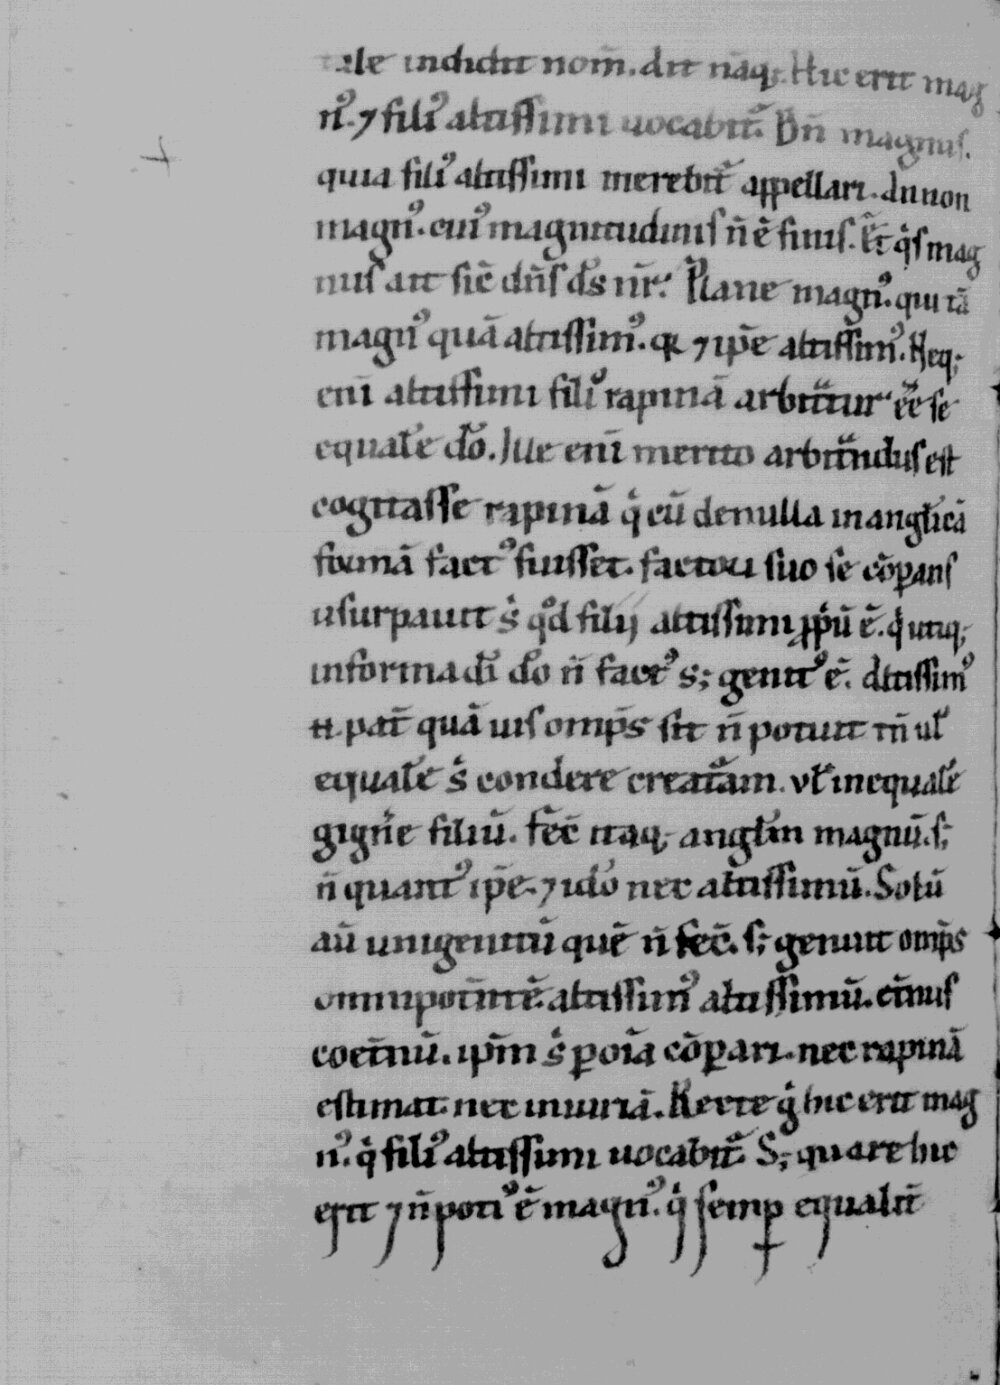 tale indidit nom̄. Ait nāq;. Hic erit mag
n᷒. ⁊ fili᷒ altissimi uocabit᷑. Bn̄ magnus.
quia fili᷒ altissimi merebit᷑ appellari. An non
magn᷒. cui᷒ magnitudinis n̄ ē finis. Et qͥs mag
nus ait sic̄ dn̄s ds̄ nr̄? Plane magn᷒. qui tā
magn᷒ quā altissim᷒. qꝛ ⁊ ip̄e altissim᷒. Neq;
eni̅ altissimi fili᷒ rapinā arbitͣtur eē̄ se
equalē dō. Ille eni̅ merito arbitͣndus est
cogitasse rapinā qͥ cū de nulla in anglicā
formā fact᷒ fuisset. factori suo se cōꝑans
usurpauit sͥ qđ filij altissimi ꝓpͥū ē. qͥ utiq;
in forma dī dō n̄ fact᷒ s; genit᷒ ē. Altissim᷒
.n. pat̄ quā uis omp̄s sit n̄ potuit tn̄ uł
equalē sͥ condere creatᷓam. vł inequalē
gignͤe filiū. Fec̄ itaq; anglm̄ magnū. s;
n̄ quant᷒ ip̄e. ⁊ idō nec altissimū. Solū
aū unigenitū quē n̄ fec̄. s; genuit omp̄s
omnipotēntē. altissim᷒ altissimū. et̄nus
coet̄nū. ip̄m sͥ ꝑ oīa cōꝑari. nec rapinā
estimat. nec iniuriā. Recte gͥ hic erit mag
n᷒. qͥ fili᷒ altissimi uocabit᷑. S; quare hic
erit ⁊ n̄ poti᷒ ē magn᷒. qͥ semꝑ equalit̄